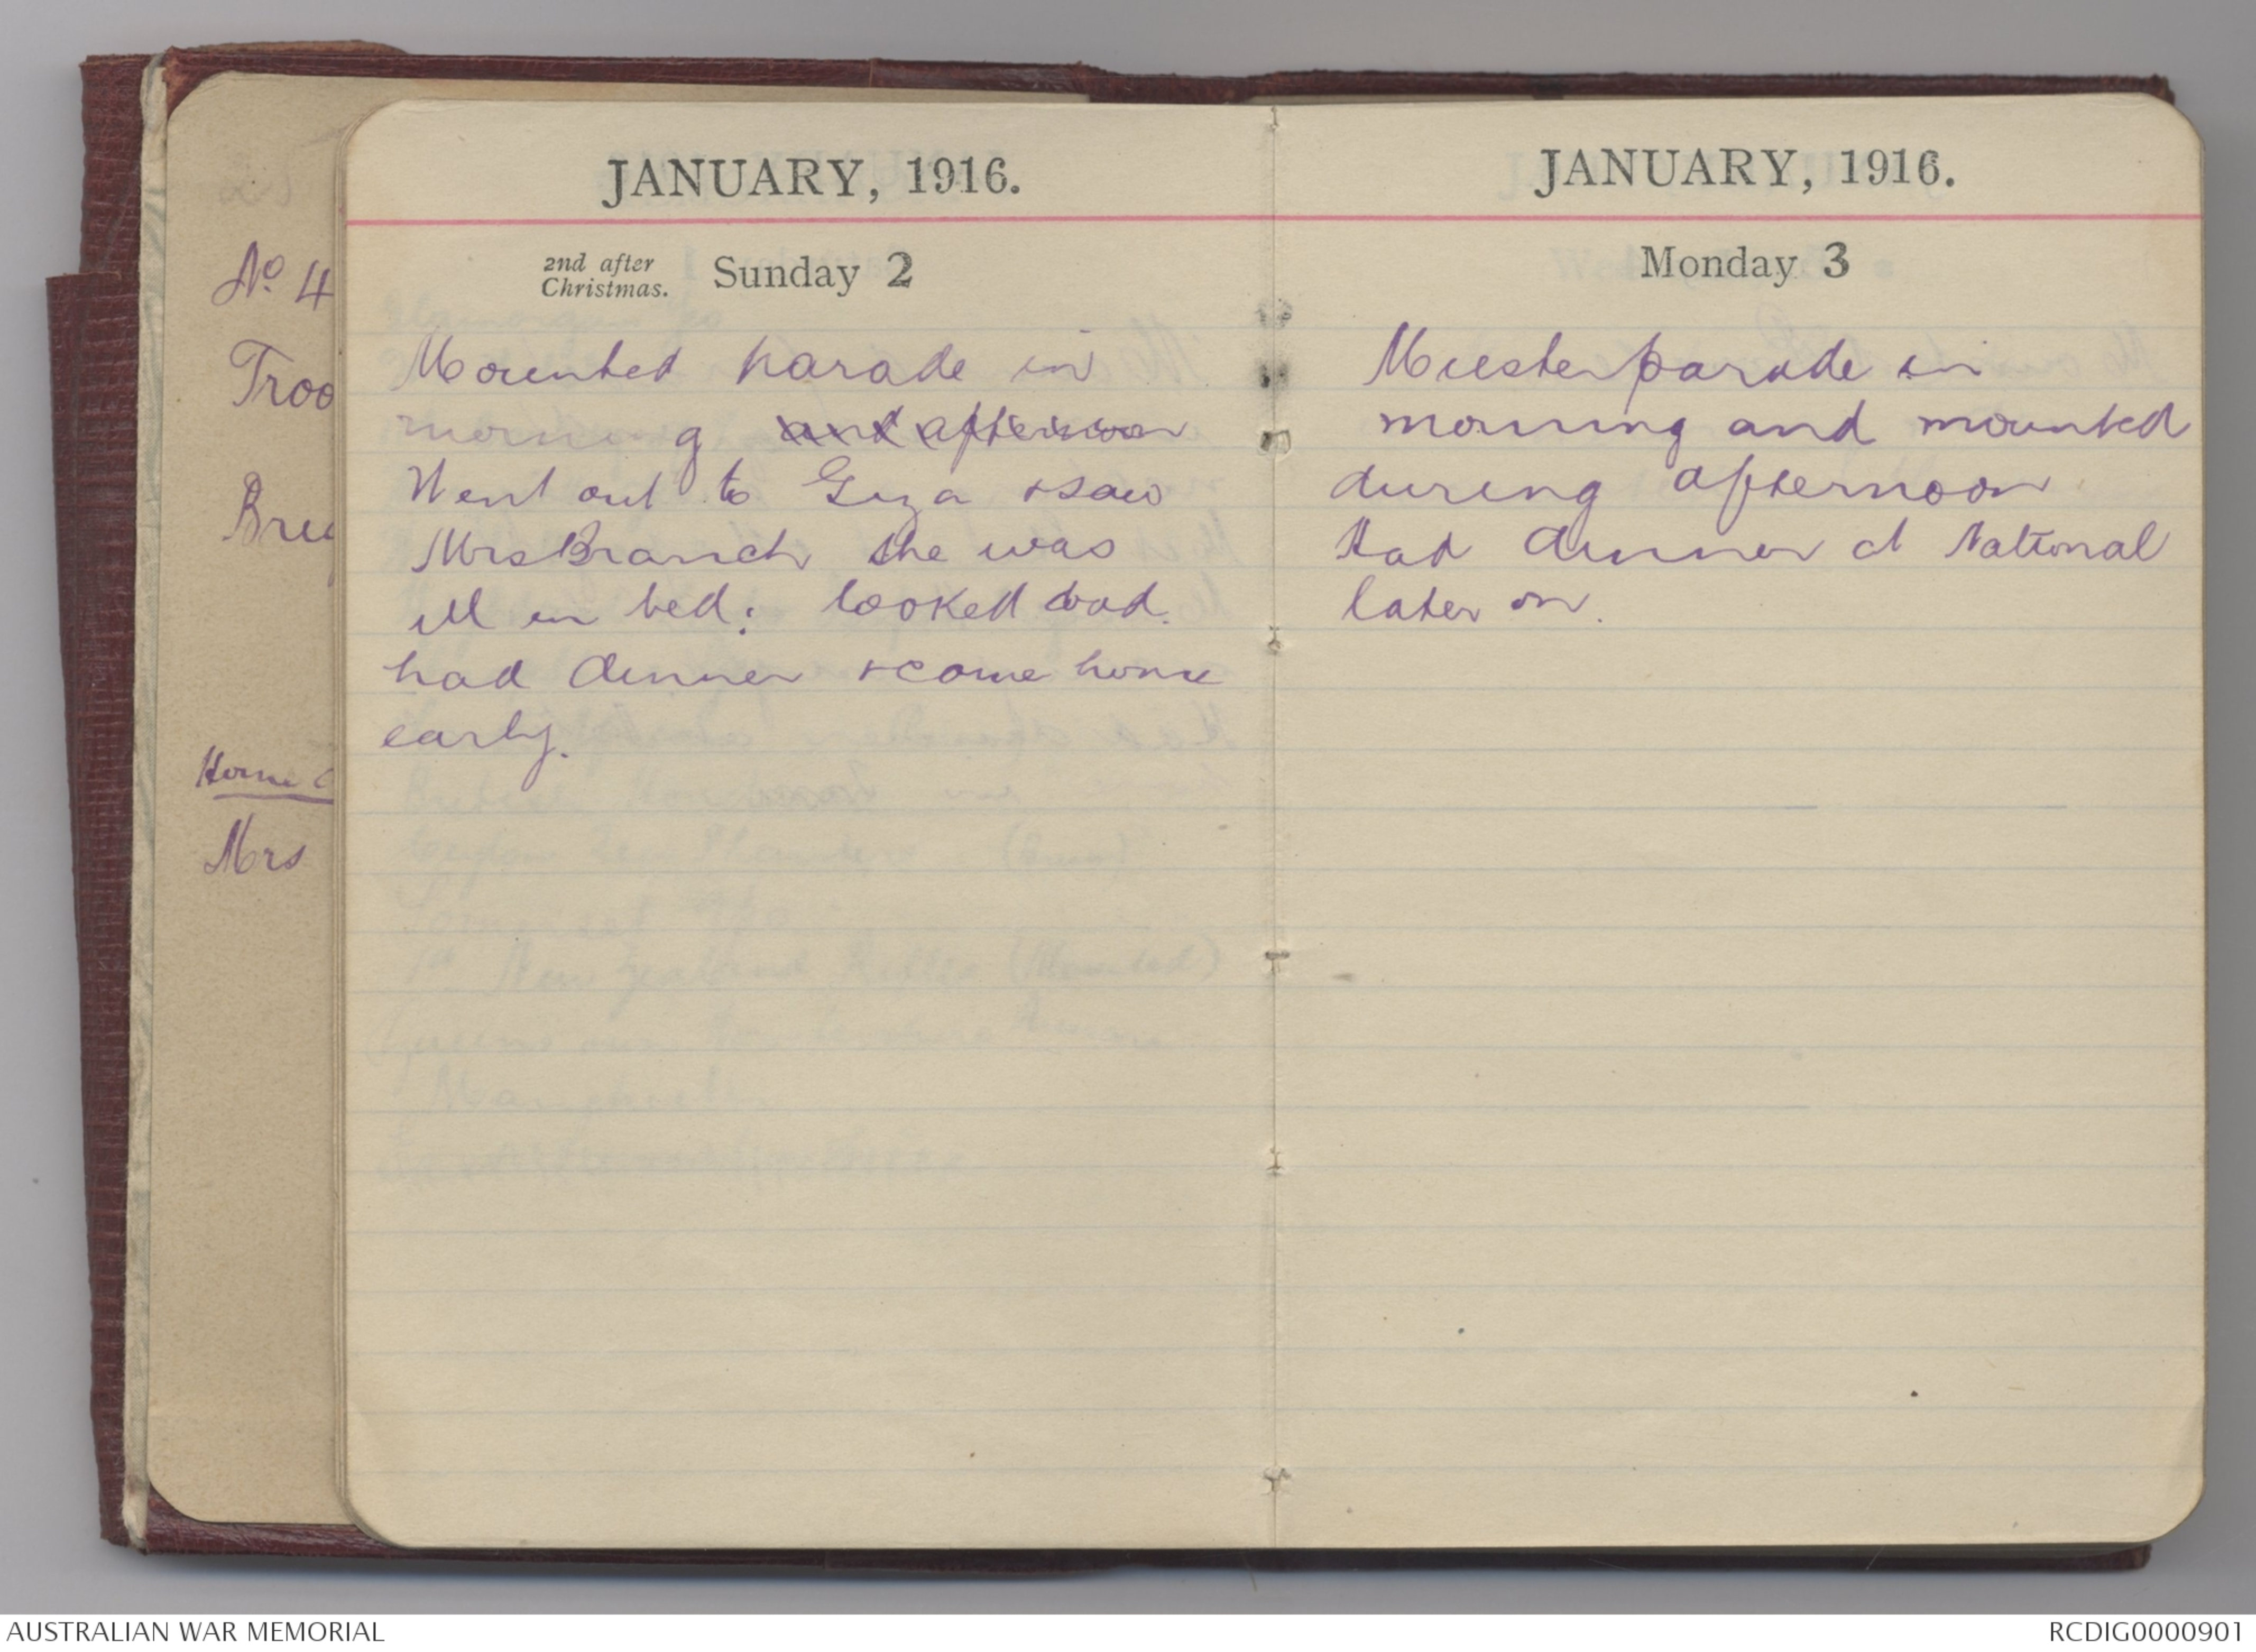 JANUARY, 1916.
2nd after
Christmas. Sunday 2
Mounted parade in
morning and afternoon
Went out to Giza & saw
Mrs Branch she was
ill in bed; looked bad.
had dinner & came home
early.
JANUARY, 1916.
Monday 3
Muster parade in
morning and mounted
during afternoon
Had dinner at National
later on.
No 4
Troo
Home
Mrs
AUSTRALIAN WAR MEMORIAL
RCDIG0000901